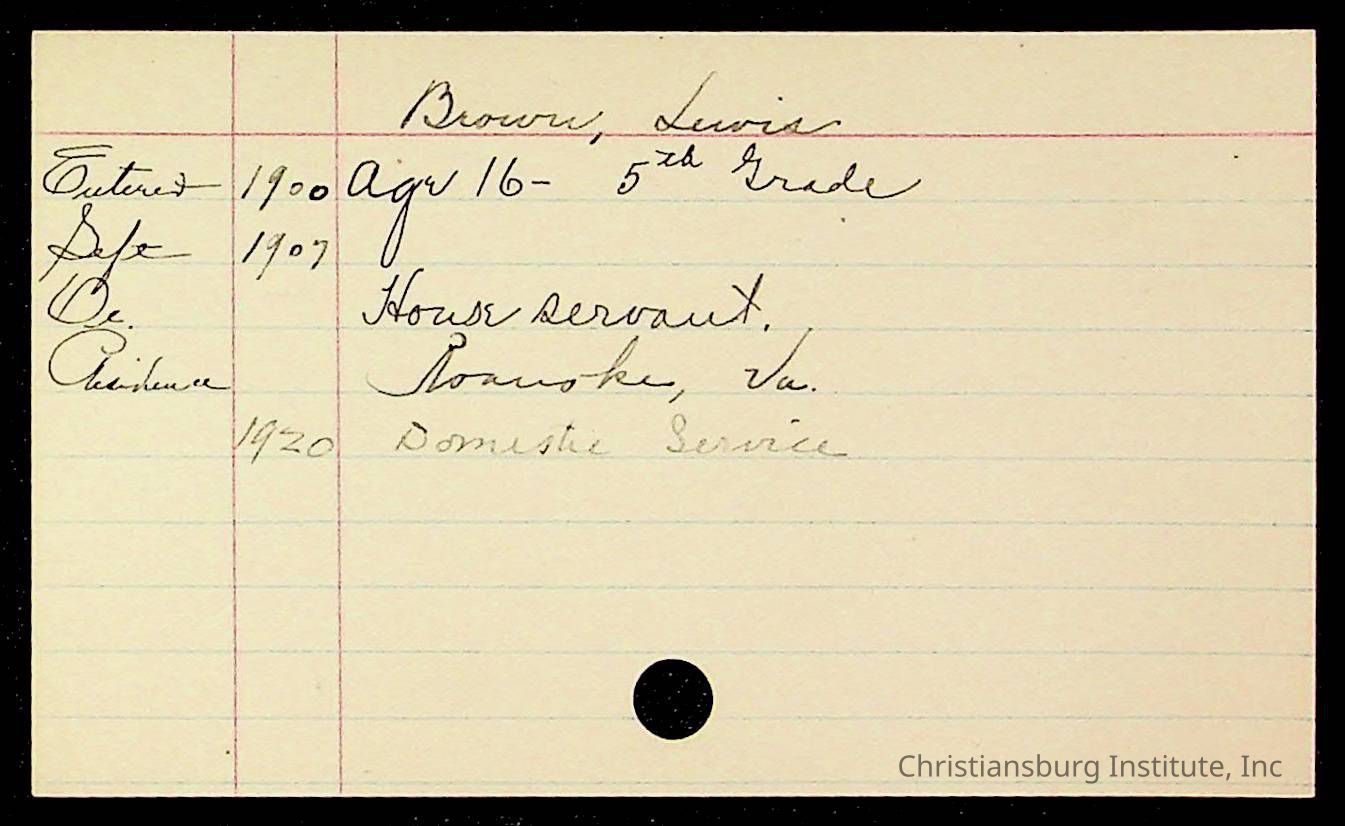 Brown, Lewis
Entered 1900 Age 16- 5th Grade
Left 1907
Oc. House servant.
Residence Roanoke, Va.
1920 Domestic Service
Christiansburg Institute, Inc